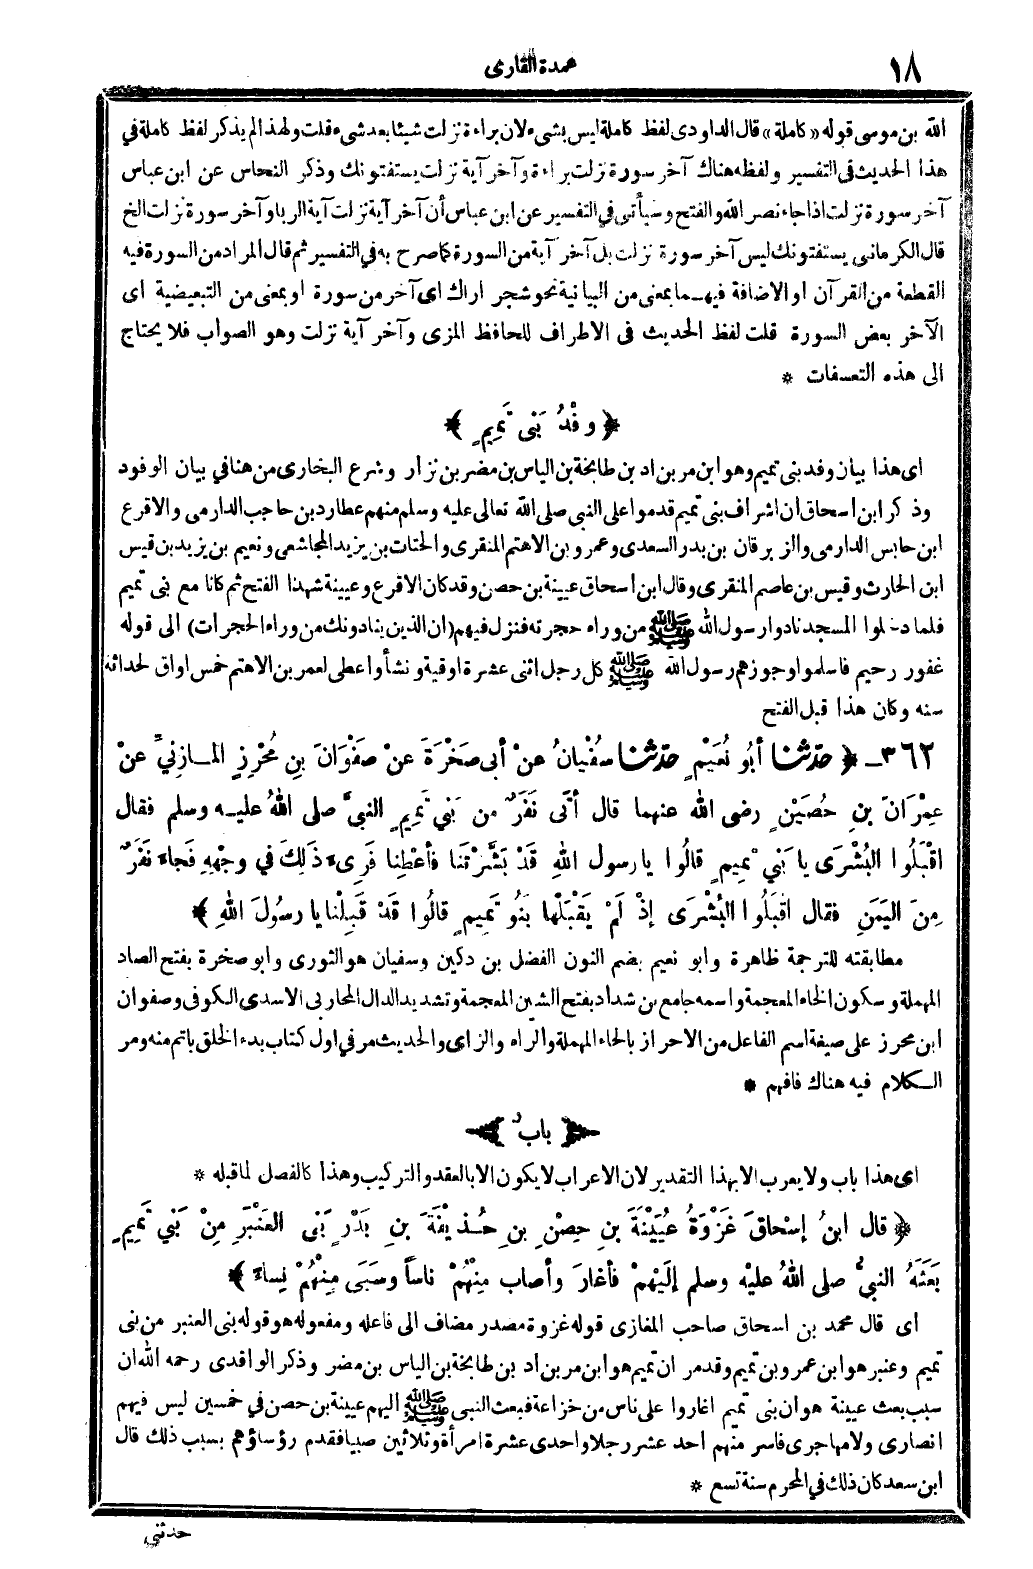 ١٨
عمدة القارى
الله بن موسى قوله «كاملة» قال الداودى لفظ كاملة ليس بشىء لان براءة نزلت شيئا بعد شىء قلت ولهذا لم يذكر لفظ كاملة في
هذا الحديث فى التفسير ولفظه هناك آخر سورة نزلت براءة وآخر آية نزلت يستفتونك وذكر النحاس عن ابن عباس
آخر سورة نزلت اذا جاء نصر الله والفتح وسيأتى في التفسير عن ابن عباس أن آخر آية نزلت آية الربا وآخر سورة نزلت الخ
قال الكرمانى يستفتونك ليس آخر سورة نزلت بل آخر آية من السورة كما صرح به فى التفسير ثم قال المراد من السورة فيه
القطعة من القرآن او الاضافة فيهما بمعنى من البيانية نحو شجر اراك اى آخر من سورة او بمعنى من التبعيضية اى
الآخر بعض السورة قلت لفظ الحديث فى الاطراف للحافظ المزى وآخر آية نزلت وهو الصواب فلا يحتاج
الى هذه التعسفات *
﴿ وفْدُ بَنى تَمِيمٍ ﴾
اى هذا بيان وفد بنى تميم وهو ابن مر بن اد بن طابخة بن الياس بن مضر بن نزار وشرع البخارى من هنا في بيان الوفود
وذكر ابن اسحاق ان اشراف بنى تميم قدموا على النبى صلى الله تعالى عليه وسلم منهم عطارد بن حاجب الدارمى والاقرع
ابن حابس الدارمى والزبرقان بن بدر السعدى وعمرو بن الاهتم المنقرى والحتات بن يزيد المجاشعى ونعيم بن يزيد بن قيس
ابن الحارث وقيس بن عاصم المنقرى وقال ابن اسحاق عيينة بن حصن وقد كان الاقرع وعيينة شهدا الفتح ثم كانا مع بنى تميم
فلما دخلوا المسجد نادوا رسول الله ﷺ من وراء حجرته فنزل فيهم (ان الذين ينادونك من وراء الحجرات) الى قوله
غفور رحيم فاسلموا وجوزهم رسول الله ﷺ كل رجل اثنى عشرة اوقية ونشأ واعطى لعمر بن الاهتم خمس اواق لحداثة
سنه وكان هذا قبل الفتح
٣٦٢ـ ﴿ حَدَّثَنَا أبُو نُعَيْمٍ حَدَّثَنَا سُفْيانُ عنْ أبى صَخْرَةَ عنْ صَفْوَانَ بنِ مُحْرِزٍ المـازِنيِّ عنْ
عِمْرَانَ بنِ حُصَيْنٍ رضى الله عنهما قال أتَى نَفَرٌ من بَني تَمِيمٍ النبيَّ صلى اللهُ عليـه وسلم فقال
اقْبَلُوا البُشْرَى يا بَنِي تَمِيمٍ قالُوا يا رسول اللهِ قَدْ بَشَّرْتَنا فأعْطِنا فَرِىءَ ذٰلِكَ في وجْهِهِ فَجاءَ نَفَرٌ
مِنَ اليَمَنِ فقال اقْبَلُوا البُشْرَى إذْ لَمْ يَقْبَلْها بَنُو تَمِيمٍ قالُوا قَدْ قَبِلْنا يا رسُولَ اللهِ ﴾
مطابقته للترجمة ظاهرة وابو نعيم بضم النون الفضل بن دكين وسفيان هو الثورى وابو صخرة بفتح الصاد
المهملة وسكون الخاء المعجمة واسمه جامع بن شداد بفتح الشين المعجمة وتشديد الدال المحاربى الاسدى الكوفى وصفوان
ابن محرز على صيغة اسم الفاعل من الاحراز بالحاء المهملة والراء والزاى والحديث مر في اول كتاب بدء الخلق باتم منه ومر
الـكلام فيه هناك فافهم *
﴿ بابٌ ﴾
اى هذا باب ولا يعرب الا بهذا التقدير لان الاعراب لا يكون الا بالعقد والتركيب وهذا كالفصل لما قبله *
﴿ قال ابنُ إسْحاقَ غَزْوَةُ عُيَيْنَةَ بنِ حِصْنِ بنِ حُـذَيْفَةَ بنِ بَدْرٍ بَنى العَنْبَرِ مِنْ بَني تَمِيمٍ
بَعَثَهُ النبيُّ صلى اللهُ عليْه وسلم إلَيْهِمْ فأغارَ وأصاب مِنْهُمْ ناساً وسَبَى مِنْهُمْ نِساءً ﴾
اى قال محمد بن اسحاق صاحب المغازى قوله غزوة مصدر مضاف الى فاعله ومفعوله هو قوله بنى العنبر من بنى
تميم وعنبر هو ابن عمرو بن تميم وقد مر ان تميم هو ابن مر بن اد بن طابخة بن الياس بن مضر وذكر الواقدى رحمه الله ان
سبب بعث عيينة هو ان بنى تميم اغاروا على ناس من خزاعة فبعث النبى ﷺ اليهم عيينة بن حصن في خمسين ليس فيهم
انصارى ولا مهاجرى فاسر منهم احد عشر رجلا واحدى عشرة امرأة وثلاثين صبيا فقدم رؤساؤهم بسبب ذلك قال
ابن سعد كان ذلك في المحرم سنة تسع *
حدثنى